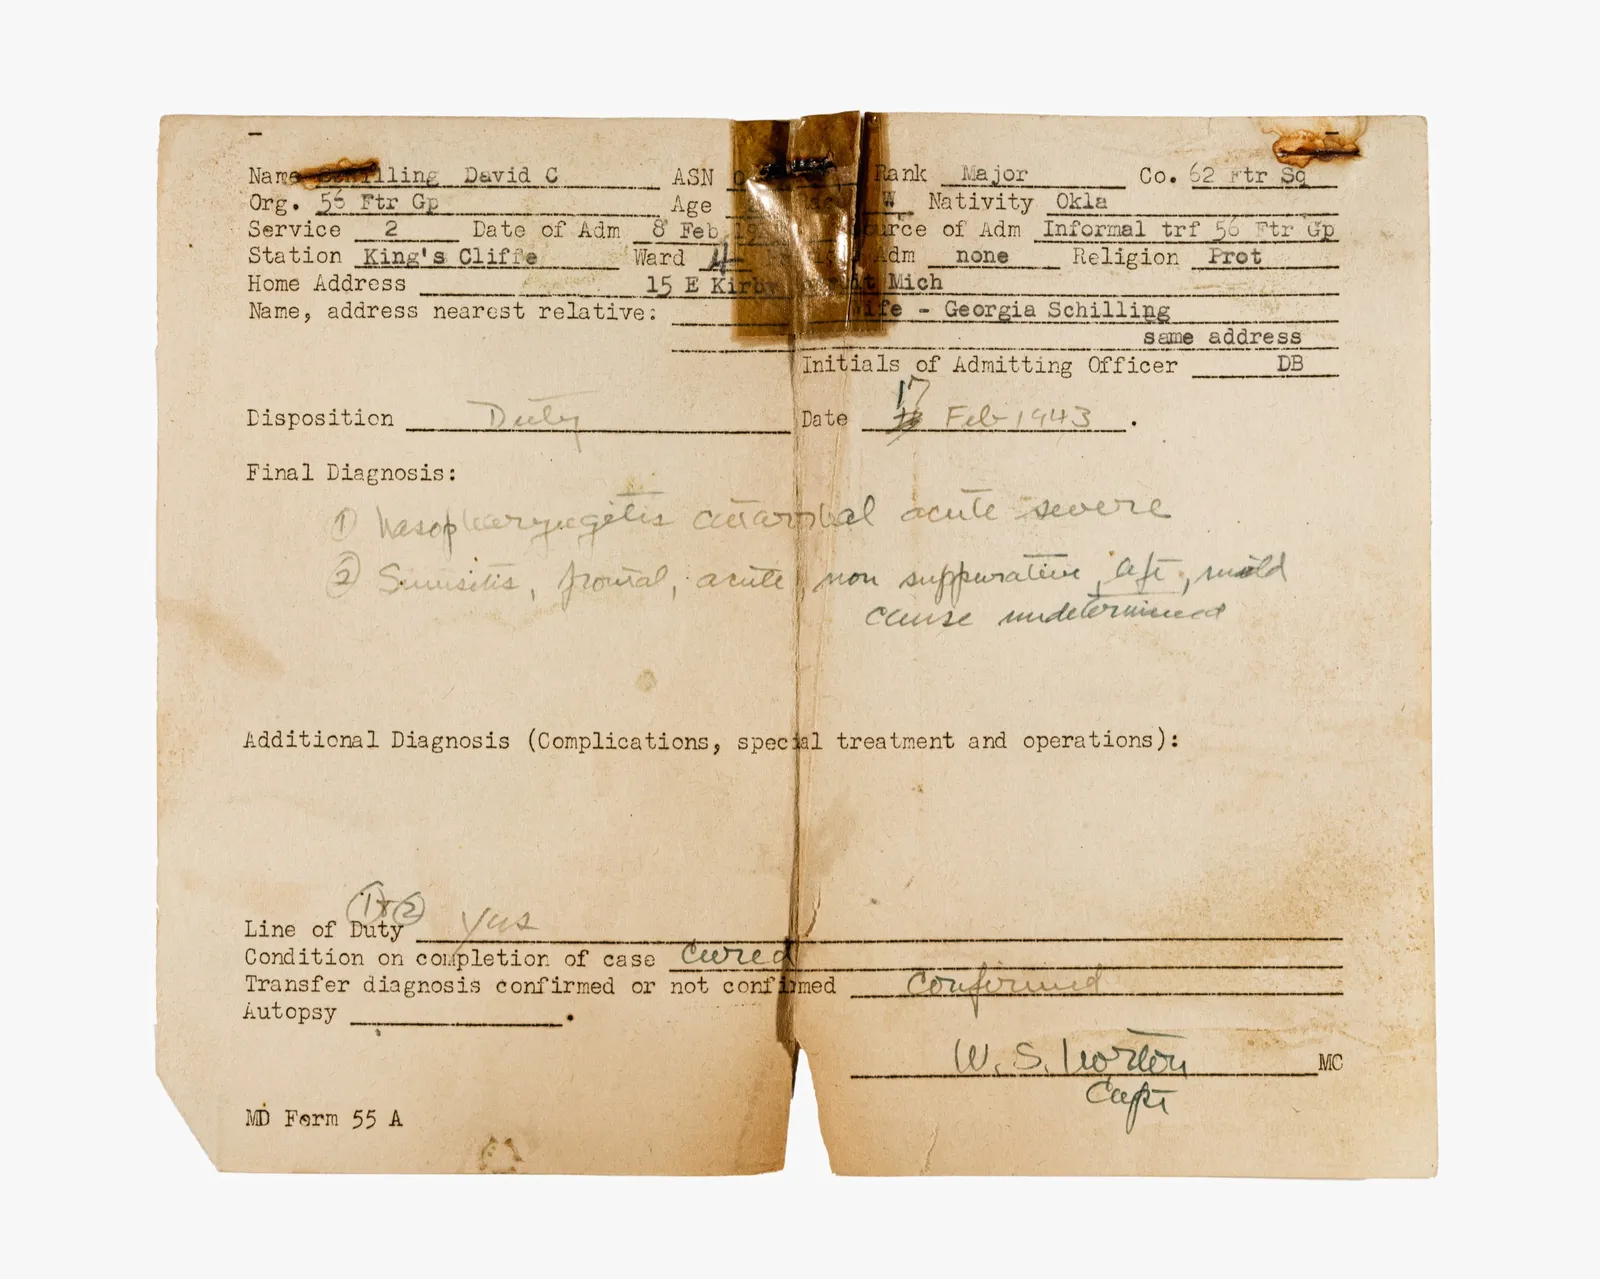 Name Schilling David C ASN Rank Major Co. 62 Ftr Sq
Org. 56 Ftr Gp Age W Nativity Okla
Service 2 Date of Adm 8 Feb 19 Source of Adm Informal trf 56 Ftr Gp
Station King's Cliffe Ward 4 Adm none Religion Prot
Home Address 15 E Kirby Mich
Name, address nearest relative: Wife - Georgia Schilling
same address
Initials of Admitting Officer DB
Disposition Duty Date 17 Feb 1943.
Final Diagnosis:
① Nasopharyngitis catarrhal acute severe
② Sinusitis, frontal, acute, non suppurative, left, mild
cause undetermined
Additional Diagnosis (Complications, special treatment and operations):
① & ②
Line of Duty yes
Condition on completion of case Cured
Transfer diagnosis confirmed or not confirmed Confirmed
Autopsy .
W. S. Norton MC
Capt
MD Form 55 A